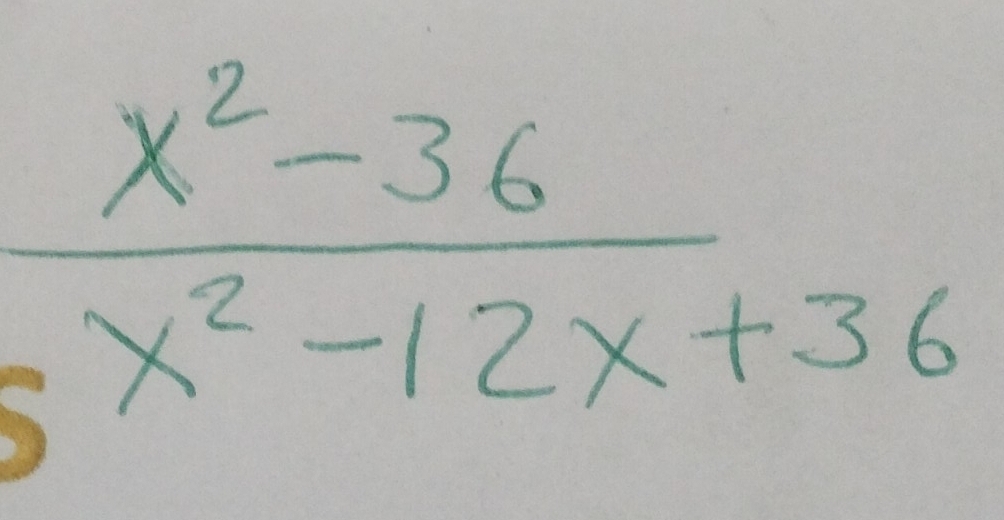 x² - 36
x² - 12x + 36
s